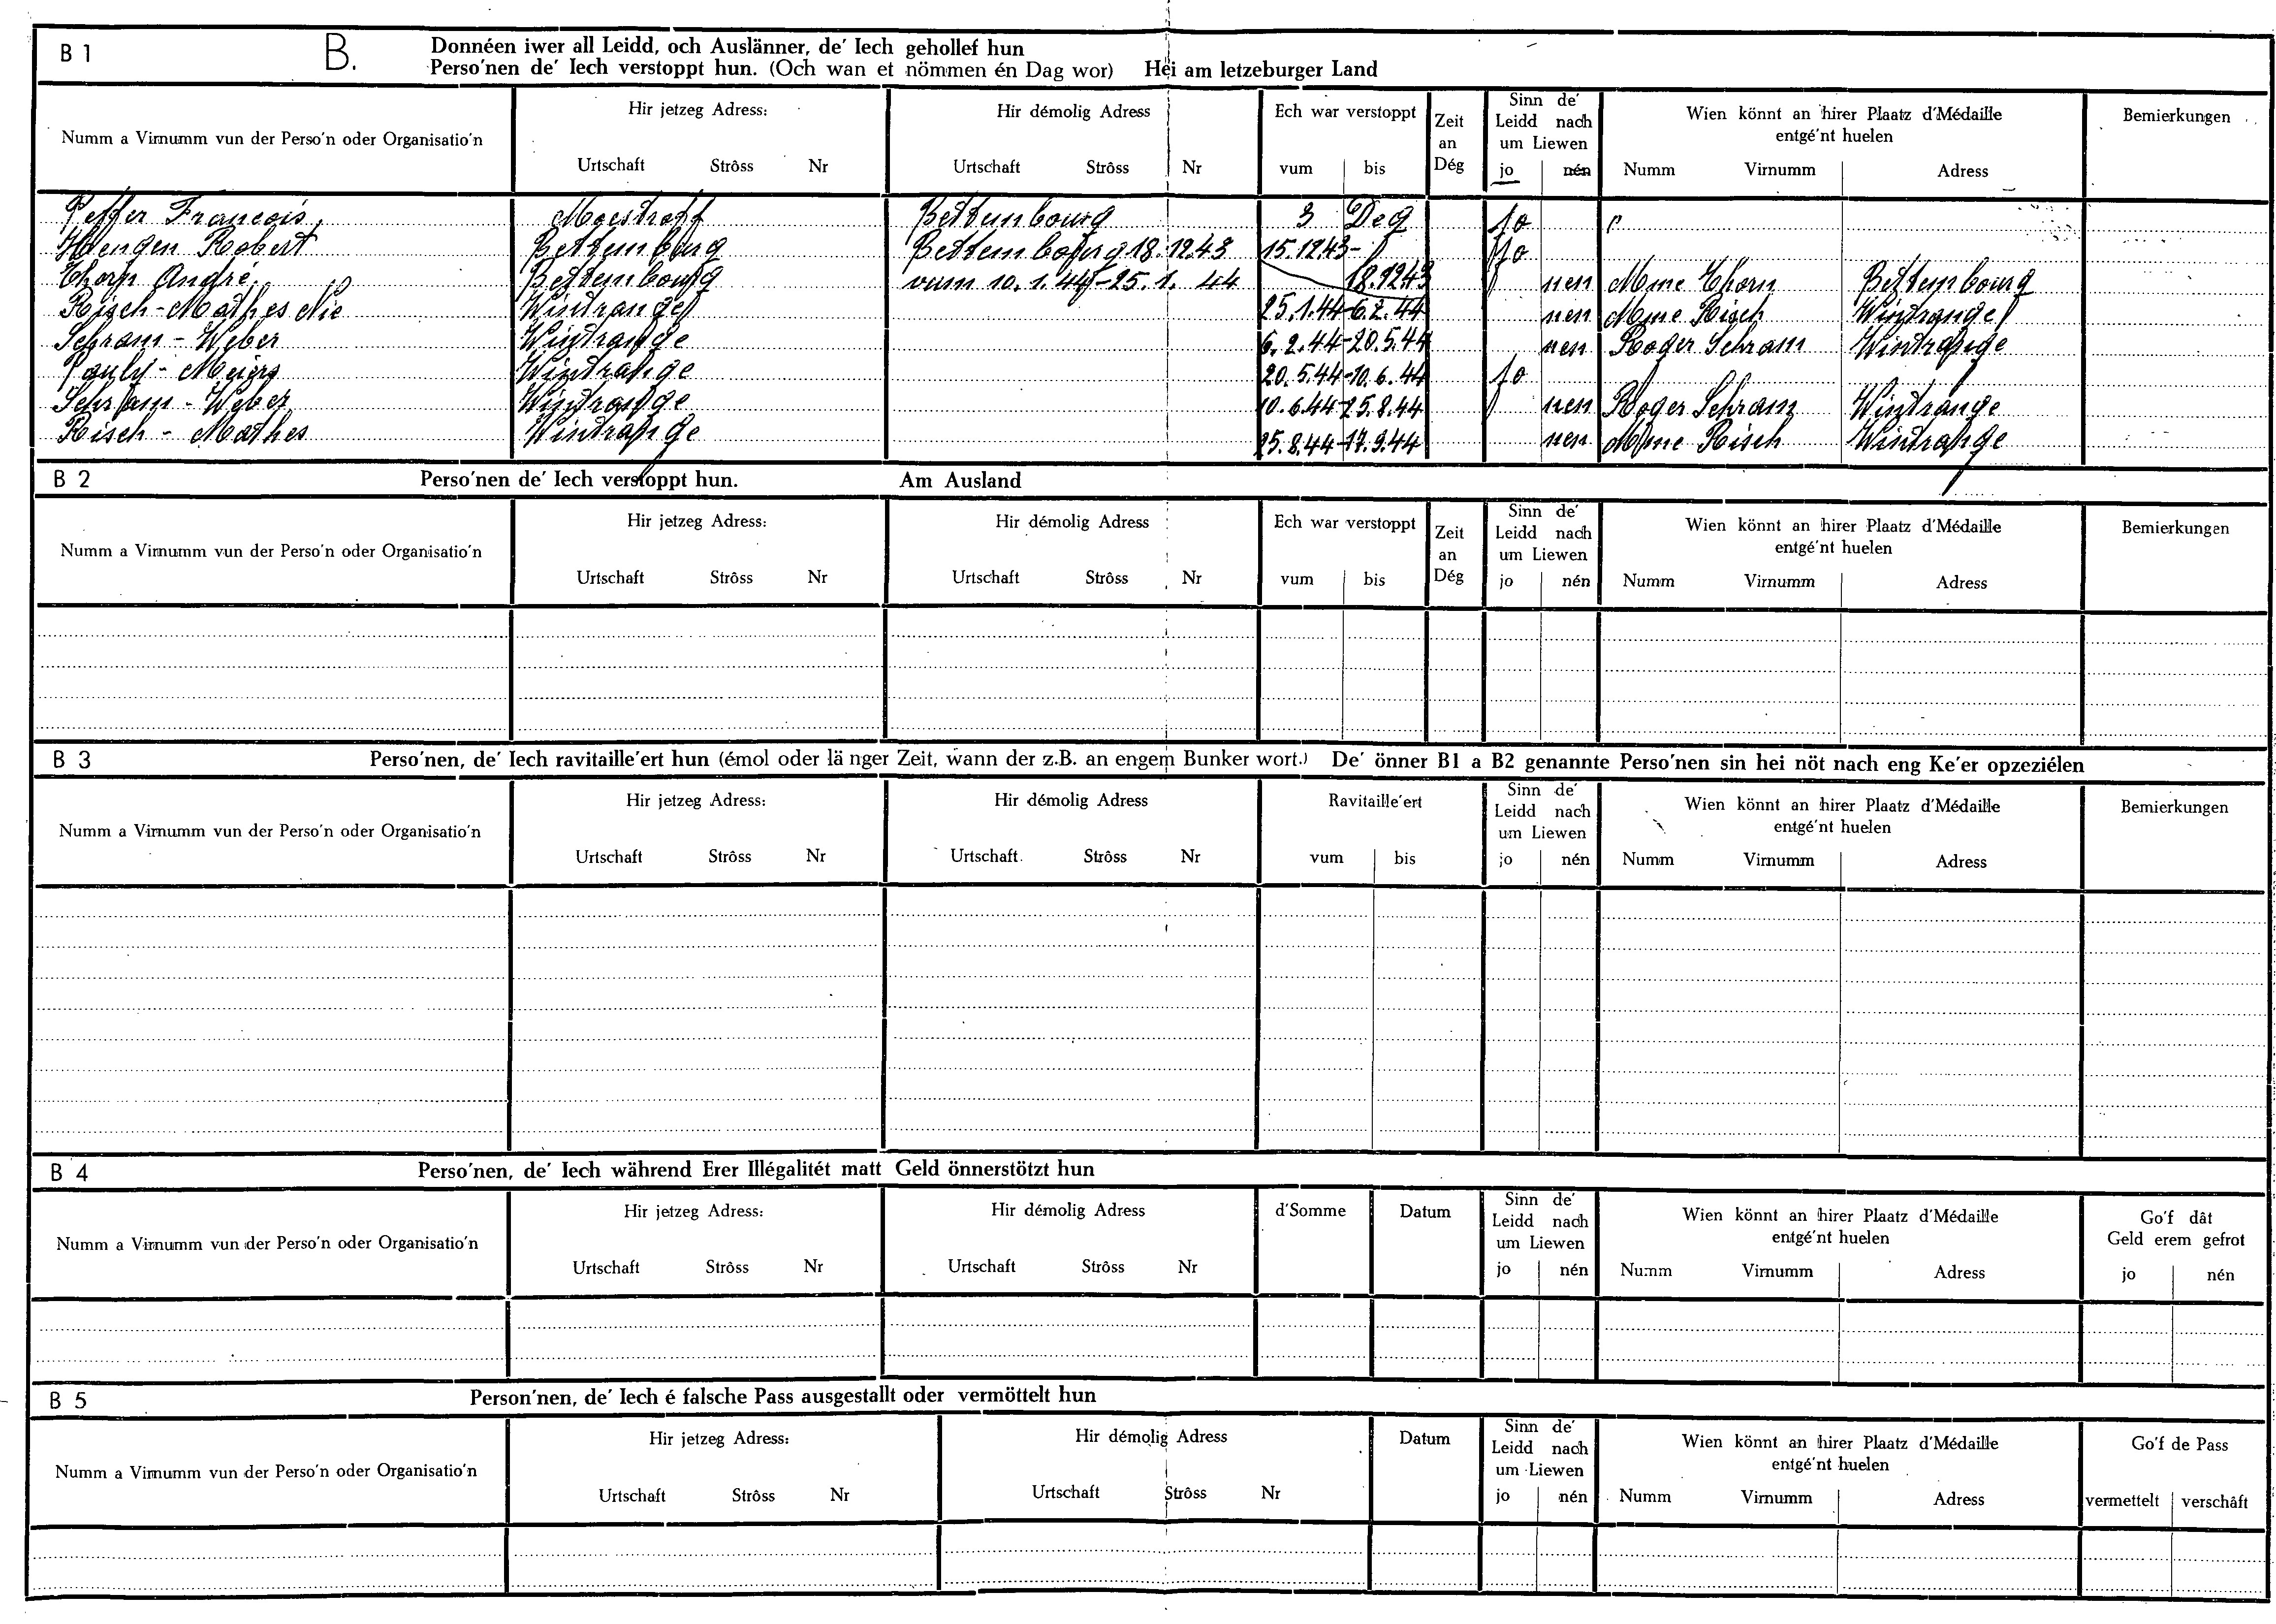 B 1 B. Donnéen iwer all Leidd, och Auslänner, de' Iech gehollef hun
Perso'nen de' Iech verstoppt hun. (Och wan et nömmen én Dag wor) Hei am letzeburger Land
Numm a Virnumm vun der Perso'n oder Organisatio'n
Hir jetzeg Adress:
Urtschaft Strôss Nr
Hir démolig Adress
Urtschaft Strôss Nr
Ech war verstoppt
vum bis
Zeit
an
Dég
Sinn de'
Leidd nach
um Liewen
jo nén
Wien könnt an hirer Plaatz d'Médaille
entgé'nt huelen
Numm Virnumm Adress
Bemierkungen
Peffer Francois Moestroff Bettembourg 3 Deg jo
Hengen Robert Bettembourg Bettembourg 18.12.43 15.12.43- jo
Thorn André Bettembourg vum 10.1.44-25.1.44 18.12.43 nen Mme Thorn Bettembourg
Risch-Mathes Nic Wintrange 25.1.44-6.2.44 nen Mme Risch Wintrange
Schram-Weber Wintrange 6.2.44-20.5.44 nen Roger Schram Wintrange
Pauly-Meiers Wintrange 20.5.44-10.6.44 jo
Schram-Weber Wintrange 10.6.44-25.8.44 nen Roger Schram Wintrange
Risch-Mathes Wintrange 25.8.44-17.9.44 nen Mme Risch Wintrange
B 2 Perso'nen de' Iech verstoppt hun. Am Ausland
Numm a Virnumm vun der Perso'n oder Organisatio'n
Hir jetzeg Adress:
Urtschaft Strôss Nr
Hir démolig Adress
Urtschaft Strôss Nr
Ech war verstoppt
vum bis
Zeit
an
Dég
Sinn de'
Leidd nach
um Liewen
jo nén
Wien könnt an hirer Plaatz d'Médaille
entgé'nt huelen
Numm Virnumm Adress
Bemierkungen
B 3 Perso'nen, de' Iech ravitaille'ert hun (émol oder länger Zeit, wann der z.B. an engem Bunker wort.) De' önner B1 a B2 genannte Perso'nen sin hei nöt nach eng Ke'er opzeziélen
Numm a Virnumm vun der Perso'n oder Organisatio'n
Hir jetzeg Adress:
Urtschaft Strôss Nr
Hir démolig Adress
Urtschaft Strôss Nr
Ravitaille'ert
vum bis
Sinn de'
Leidd nach
um Liewen
jo nén
Wien könnt an hirer Plaatz d'Médaille
entgé'nt huelen
Numm Virnumm Adress
Bemierkungen
B 4 Perso'nen, de' Iech während Erer Illégalitét matt Geld önnerstötzt hun
Numm a Virnumm vun der Perso'n oder Organisatio'n
Hir jetzeg Adress:
Urtschaft Strôss Nr
Hir démolig Adress
Urtschaft Strôss Nr
d'Somme
Datum
Sinn de'
Leidd nach
um Liewen
jo nén
Wien könnt an hirer Plaatz d'Médaille
entgé'nt huelen
Numm Virnumm Adress
Go'f dât
Geld erem gefrot
jo nén
B 5 Person'nen, de' Iech é falsche Pass ausgestallt oder vermöttelt hun
Numm a Virnumm vun der Perso'n oder Organisatio'n
Hir jetzeg Adress:
Urtschaft Strôss Nr
Hir démolig Adress
Urtschaft Strôss Nr
Datum
Sinn de'
Leidd nach
um Liewen
jo nén
Wien könnt an hirer Plaatz d'Médaille
entgé'nt huelen
Numm Virnumm Adress
Go'f de Pass
vermettelt verschâft